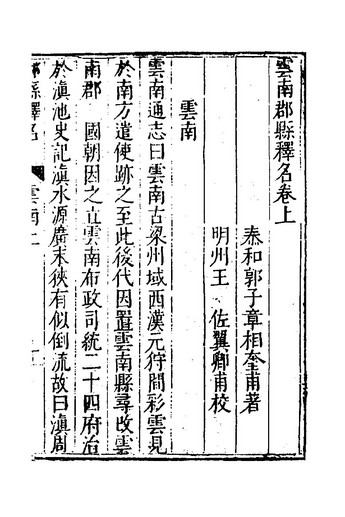 雲南郡縣釋名卷上
泰和郭子章相奎甫著
明州王 佐翼卿甫校
雲南
雲南通志曰雲南古梁州域西漢元狩間彩雲見
於南方遣使跡之至此後代因置雲南縣尋改雲
南郡 國朝因之立雲南布政司統二十四府治
於滇池史記滇水源廣末狹有似倒流故曰滇周
郡縣釋名 雲南上 一